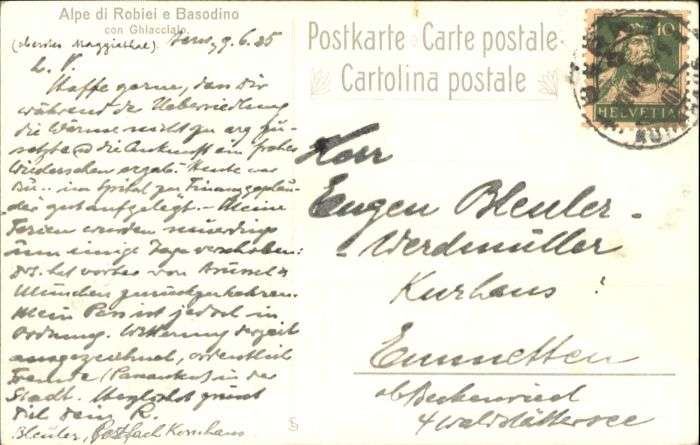 Alpe di Robiei e Basodino
con Ghiacciaio.
(oberstes Maggiathal) Bern, 9.6.25
L. V.
Hoffe gerne, dass Dir
während der Uebersiedlung
die Wärme nicht zu arg zu-
setzte & die Ankunft ein frohes
Wiedersehen ergab. Heute war
Bü.. im Spital zu Finanzgeplau-
der gut aufgelegt. - Meine
Ferien wurden neuerdings
um einige Tage verschoben:
vorher von Brüssel &
München zurückzukehren.
Mein Pass ist jedoch in
Ordnung. Witterung derzeit
ausgezeichnet, ordentlich
Fremde in der
Stadt. grüsst
Dich Dein R.
Bleuler, Postfach Kornhaus
Postkarte Carte postale
Cartolina postale
10
HELVETIA
Herr
Eugen Bleuler-
-Werdmüller
Kurhaus !
Emmetten
ob Beckenried
4 Waldstättersee